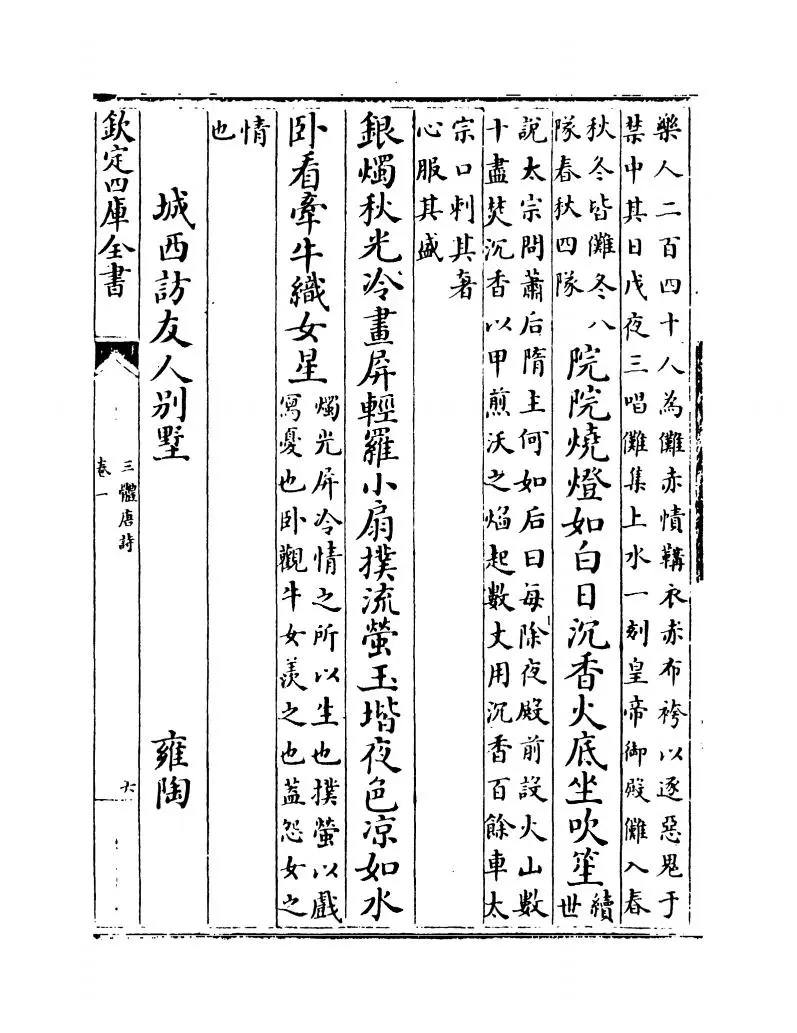 樂人二百四十人為儺赤幘鞲衣赤布袴以逐惡鬼于
禁中其日戊夜三唱儺集上水一刻皇帝御殿儺入春
秋冬皆儺冬八
隊春秋四隊
院院燒燈如白日沉香火底坐吹笙
續
世
說太宗問蕭后隋主何如后曰每除夜殿前設火山數
十盡焚沉香以甲煎沃之焰起數丈用沉香百餘車太
宗口刺其著
心服其盛
銀燭秋光冷畫屏輕羅小扇撲流螢玉堦夜色凉如水
卧看牽牛織女星
燭光屏冷情之所以生也撲螢以戲
寫憂也卧觀牛女羨之也葢怨女之
情
也
城西訪友人別墅
雍陶
欽定四庫全書
三體唐詩
卷一
六